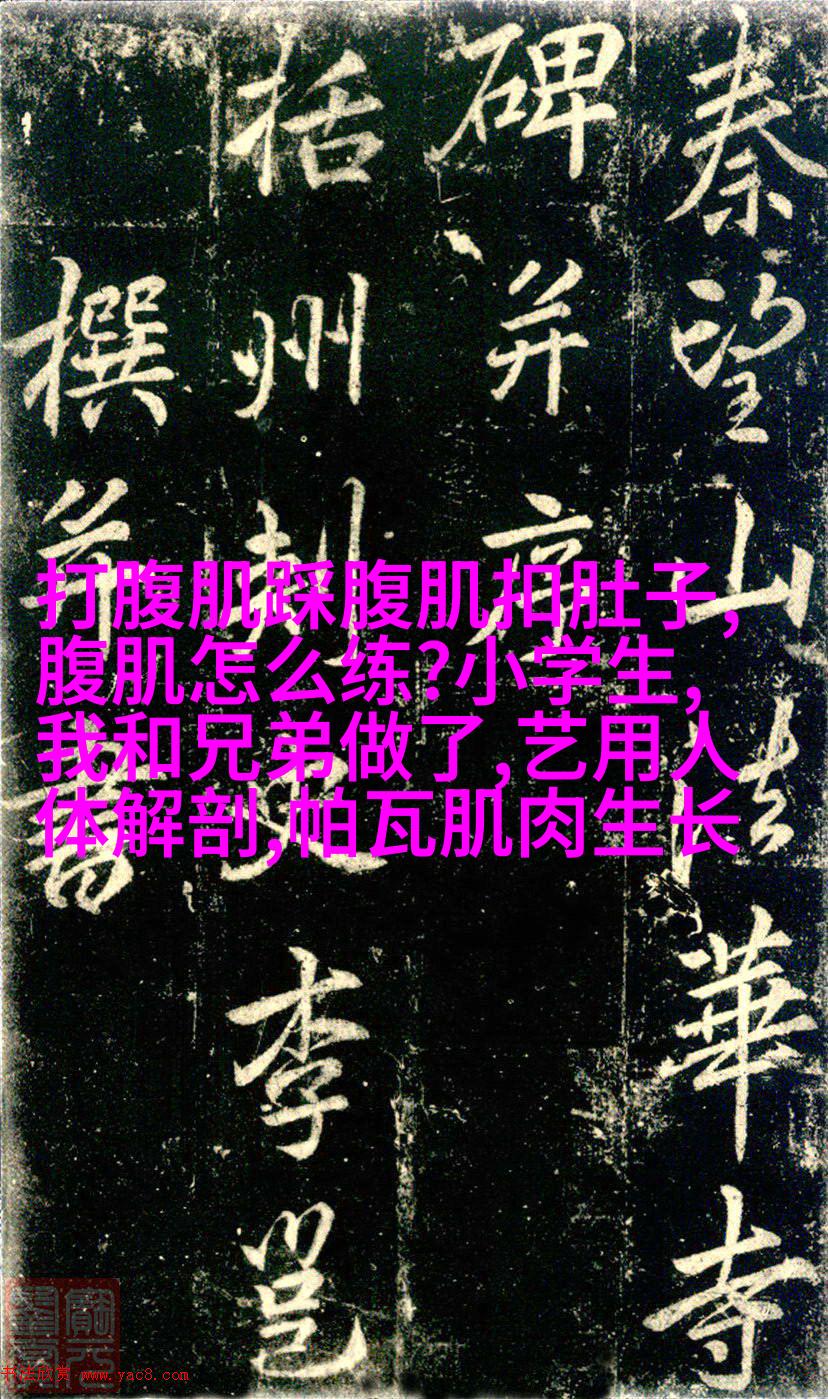 秦望山法華寺
碑并序
括州刺史李邕
撰并書
打腹肌踩腹肌扣肚子,
腹肌怎么练?小学生,
我和兄弟做了,艺用人
体解剖,帕瓦肌肉生长
书法欣赏 www.yac8.com